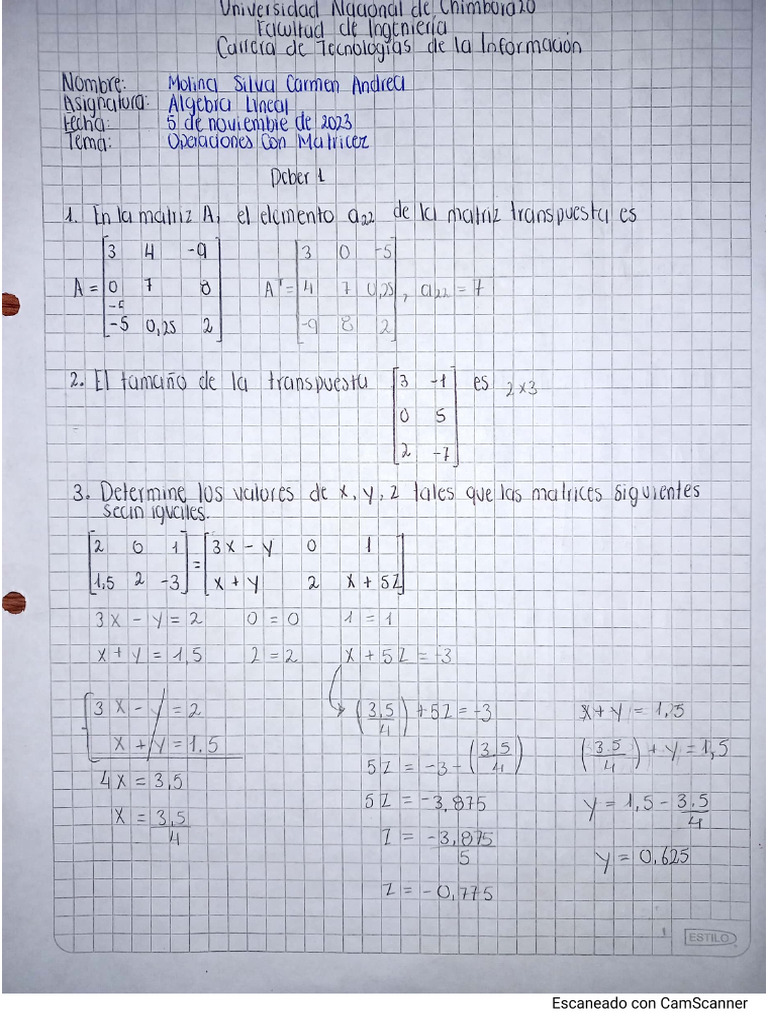 Universidad Nacional de Chimborazo
Facultad de Ingeniería
Carrera de Tecnologías de la Información
Nombre: Molina Silva Carmen Andrea
Asignatura: Algebra Lineal
Fecha: 5 de noviembre de 2023
Tema: Operaciones Con Matrices
Deber 1
1. En la matriz A, el elemento a₂₂ de la matriz transpuesta es
3 4 -9 3 0 -5
A = 0 7 8 Aᵗ = 4 7 0,25 , a₂₂ = 7
-5 0,25 2 -9 8 2
2. El tamaño de la transpuesta 3 -1 es 2x3
0 5
2 -7
3. Determine los valores de x, y, z tales que las matrices siguientes
sean iguales.
2 0 1 = 3x - y 0 1
1,5 2 -3 x + y 2 x + 5z
3x - y = 2 0 = 0 1 = 1
x + y = 1,5 2 = 2 x + 5z = -3
3x - y = 2 (3,5/4) + 5z = -3 x + y = 1,5
x + y = 1.5 5z = -3 - (3.5/4) (3.5/4) + y = 1,5
4x = 3,5 5z = -3,875 y = 1,5 - 3.5/4
x = 3,5/4 z = -3,875/5 y = 0,625
z = -0,775
1 ESTILO
Escaneado con CamScanner